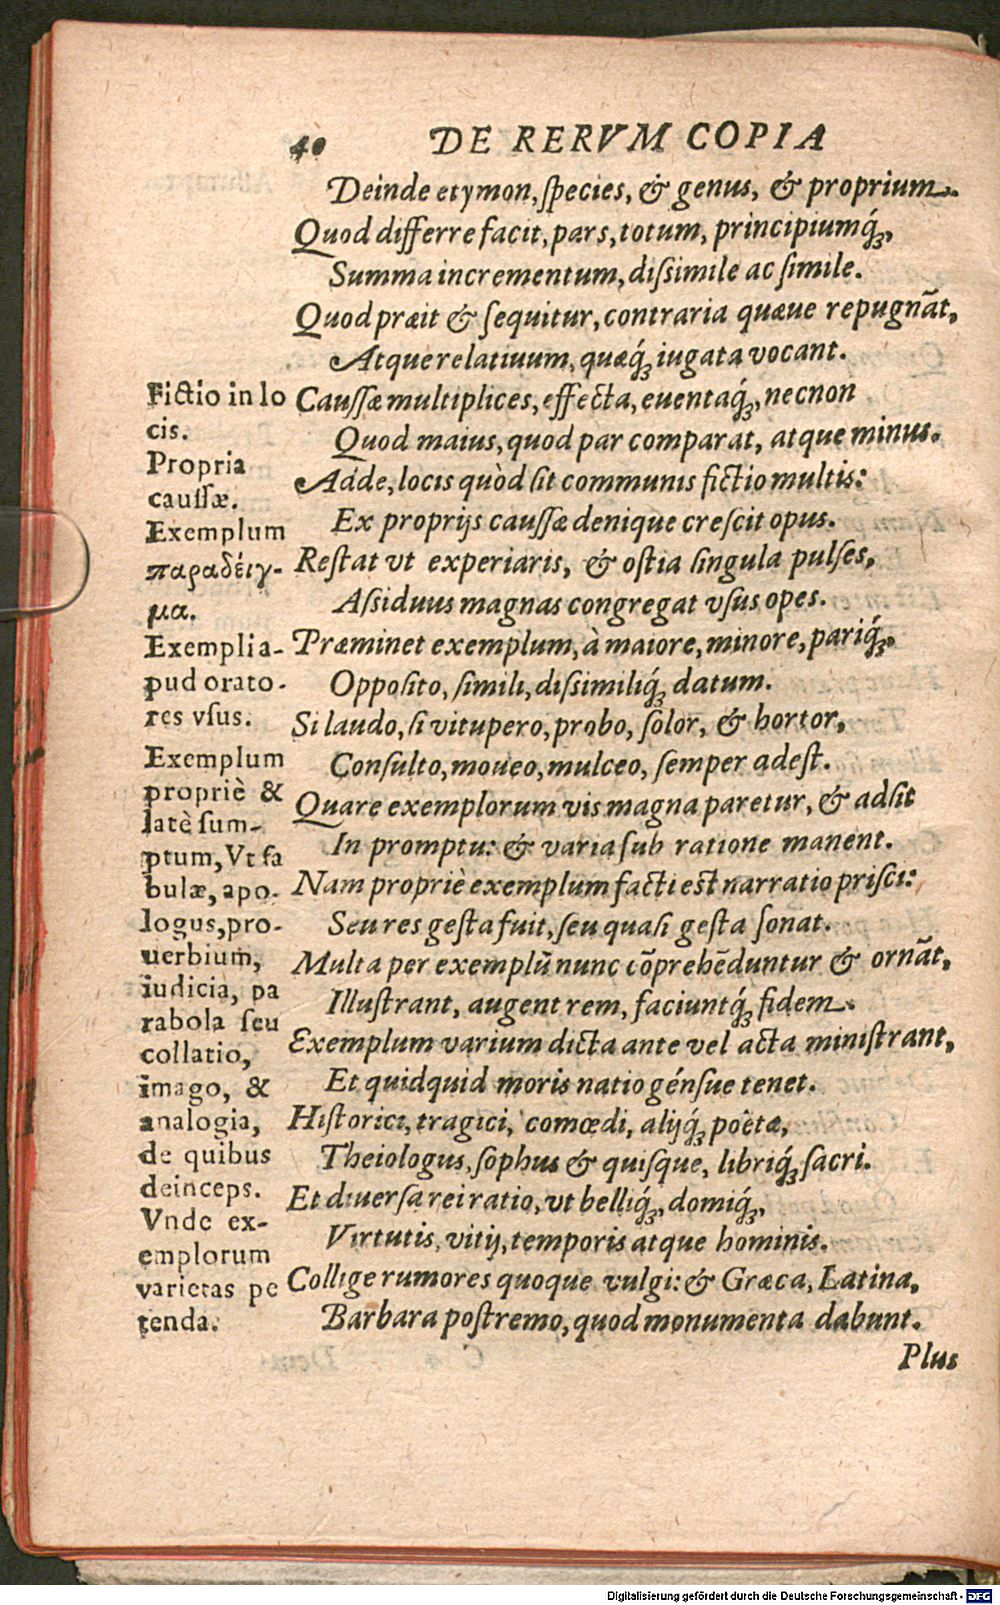 40 DE RERVM COPIA
Deinde etymon, ſpecies, & genus, & proprium.
Quod differre facit, pars, totum, principiumq́ꝫ,
Summa incrementum, diſsimile ac ſimile.
Quod præit & ſequitur, contraria quæue repugnāt,
Atque relatiuum, quæq́ꝫ iugata vocant.
Cauſſæ multiplices, effecta, euentaq́ꝫ, necnon
Quod maius, quod par comparat, atque minus.
Adde, locis quòd ſit communis fictio multis:
Ex proprijs cauſſæ denique creſcit opus.
Reſtat vt experiaris, & oſtia ſingula pulſes,
Aſsiduus magnas congregat vſus opes.
Præminet exemplum, à maiore, minore, pariq́ꝫ,
Oppoſito, ſimili, diſsimiliq́ꝫ datum.
Si laudo, ſi vitupero, probo, ſolor, & hortor,
Conſulto, moueo, mulceo, ſemper adeſt.
Quare exemplorum vis magna paretur, & adſit
In promptu: & varia ſub ratione manent.
Nam propriè exemplum facti est narratio priſci:
Seu res geſta fuit, ſeu quaſi geſta ſonat.
Multa per exemplū nunc cōprehēduntur & ornāt,
Illuſtrant, augent rem, faciuntq́ꝫ fidem.
Exemplum varium dicta ante vel acta miniſtrant,
Et quidquid moris natio génſue tenet.
Hiſtorici, tragici, comœdi, alijq́ꝫ poëtæ,
Theiologus, ſophus & quiſque, libriq́ꝫ ſacri.
Et diuerſa rei ratio, vt belliq́ꝫ, domiq́ꝫ,
Virtutis, vitij, temporis atque hominis.
Collige rumores quoque vulgi: & Græca, Latina,
Barbara poſtremo, quod monumenta dabunt.
Plus
Fictio in lo
cis.
Propria
cauſſæ.
Exemplum
παραδέιγ-
μα.
Exempli a-
pud orato-
res vſus.
Exemplum
propriè &
latè ſum-
ptum, Vt fa
bulæ, apo-
logus, pro-
uerbium,
iudicia, pa
rabola ſeu
collatio,
imago, &
analogia,
de quibus
deinceps.
Vnde ex-
emplorum
varietas pe
tenda.
Digitalisierung gefördert durch die Deutsche Forschungsgemeinschaft - DFG